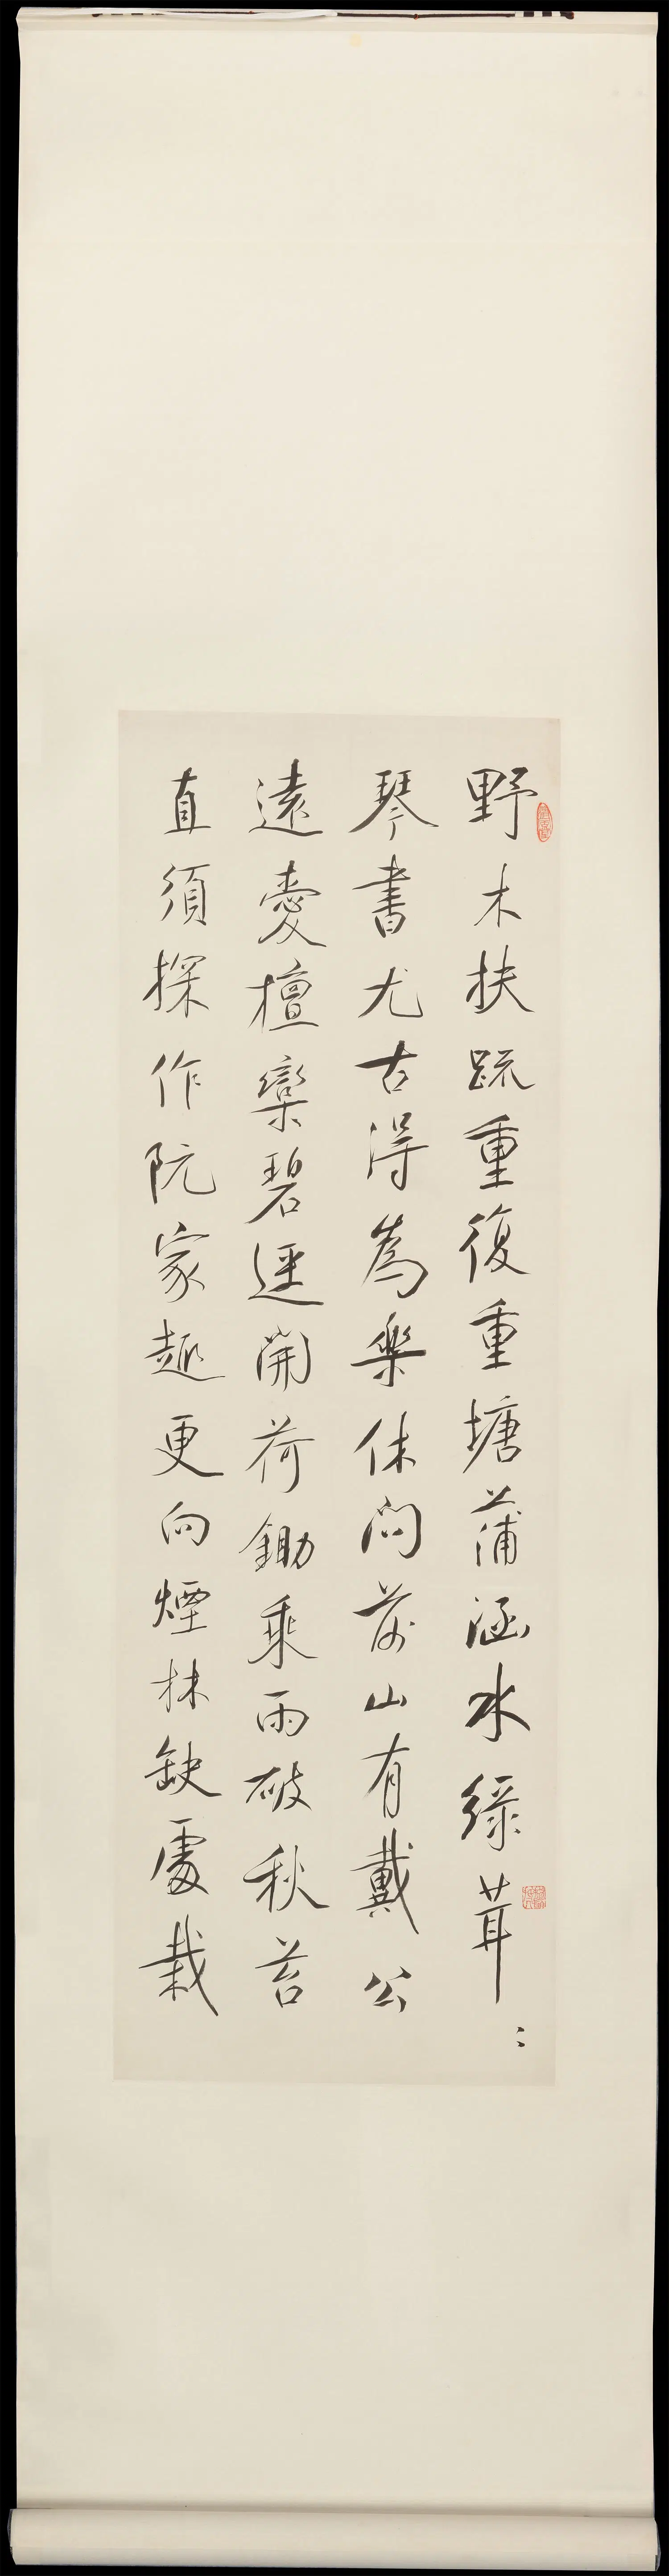 野木扶疏重復重塘蒲涵水綠茸〻
琴書尤古得為樂休問前山有戴公
遠愛檀欒碧逕開荷鋤乘雨破秋苔
直須探作阮家趣更向煙林缺處栽